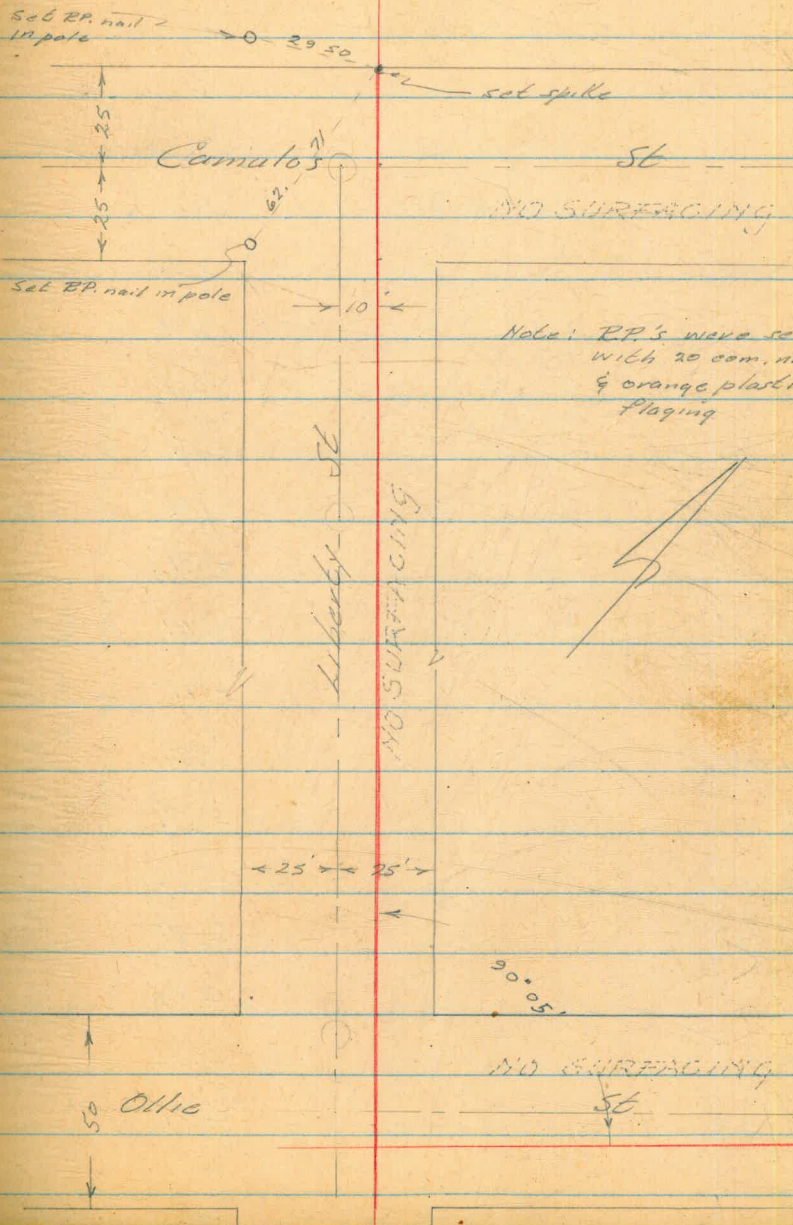 Set R.P. nail
in pole
29.50
set spike
25
25
Camulos
St
62.71
NO SURFACING
Set R.P. nail in pole
10'
Note: R.P.'s were se
with 20 com. n
& orange plasti
flaging
Liberty St
NO SURFACING
25' 25'
90°05'
NO SURFACING
50
Ollie
St